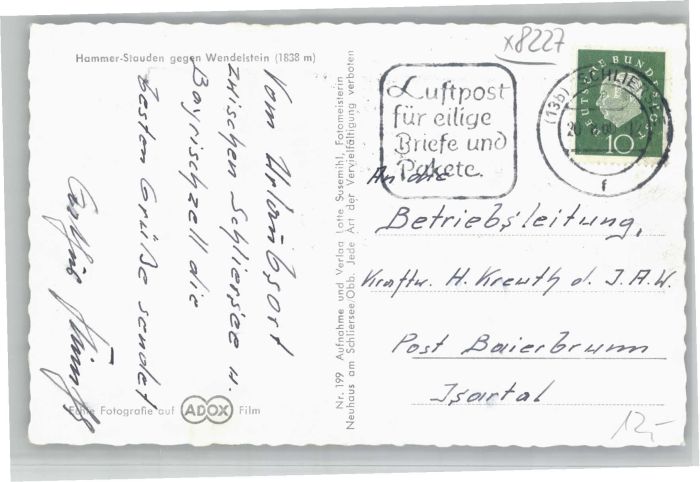 x8227
Hammer-Stauden gegen Wendelstein (1838 m)
Vom Urlaubsort
zwischen Schliersee u.
Bayrischzell die
besten Grüße sendet
Echte Fotografie auf ADOX Film
Nr. 199 Aufnahme und Verlag Lotte Susemihl, Fotomeisterin
Neuhaus am Schliersee/Obb. Jede Art der Vervielfältigung verboten
Luftpost
für eilige
Briefe und
Pakete.
(13b) SCHLIER
f
DEUTSCHE BUNDESPOST
10
An die
Betriebsleitung,
Kraftw. H. Kreuth d. I.A.W.
Post Baierbrunn
Isartal
12,-